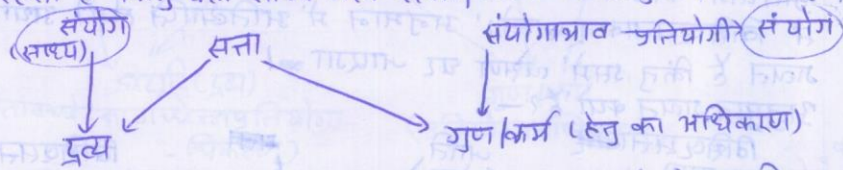 संयोग
(साध्य)
सत्ता
संयोगाभाव प्रतियोगी→ संयोग
द्रव्य
गुण/कर्म (हेतु का अधिकरण)